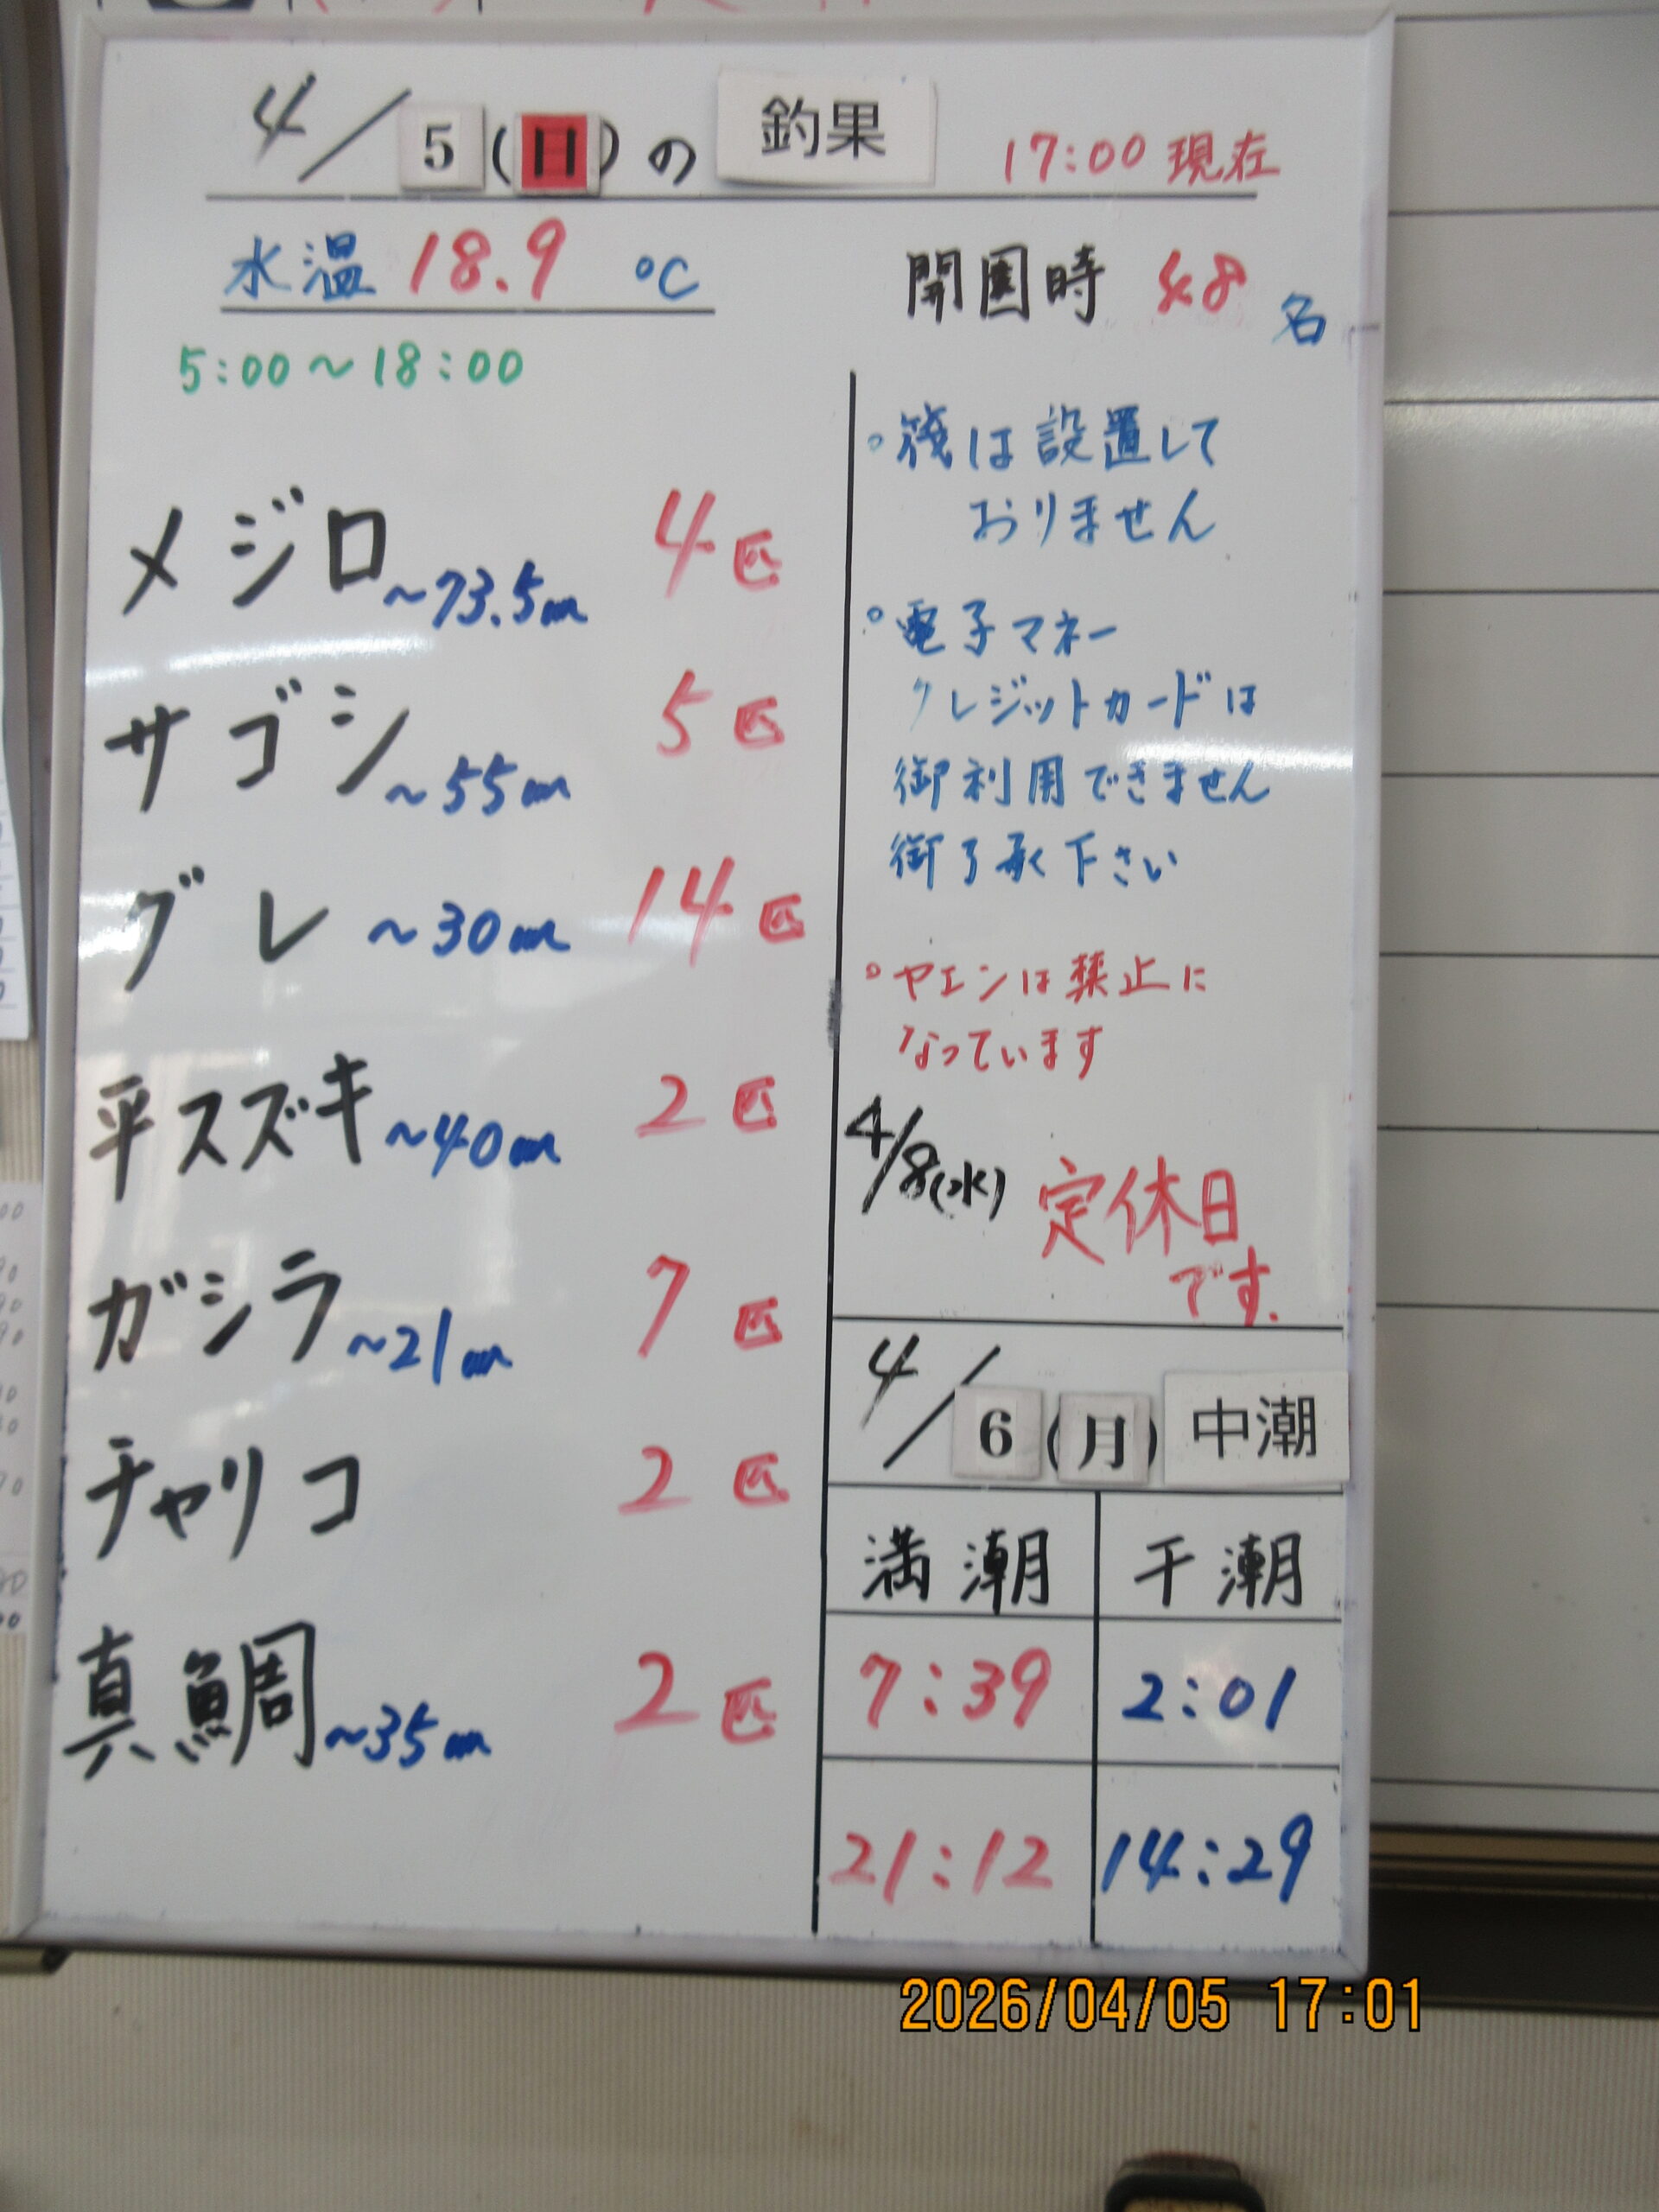 4/5(日)の 釣果 17:00 現在
水温 18.9 ℃
開園時 48 名
5:00～18:00
メジロ ～73.5㎝ 4匹
サゴシ ～55㎝ 5匹
グレ ～30㎝ 14匹
平スズキ ～40㎝ 2匹
ガシラ ～21㎝ 7匹
チャリコ 2匹
真鯛 ～35㎝ 2匹
。筏は設置して
おりません
。電子マネー
クレジットカードは
御利用できません
御了承下さい
。ヤエンは禁止に
なっています
4/8(水) 定休日
です.
4/6(月) 中潮
満潮 干潮
7:39 2:01
21:12 14:29
2026/04/05 17:01